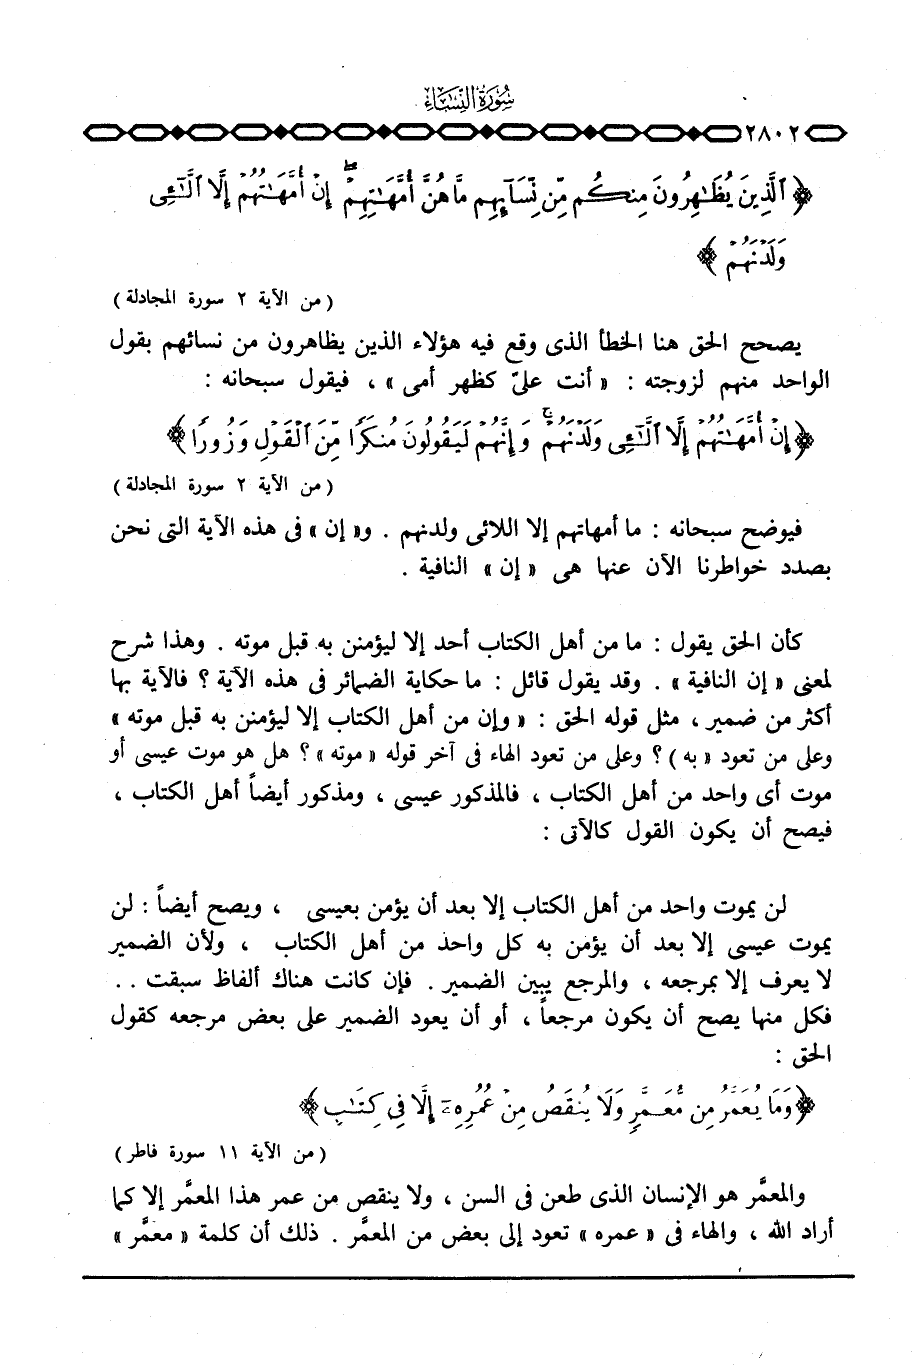 سُورَةُ النِّسَاءِ
٢٨٠٢
﴿ ٱلَّذِينَ يُظَٰهِرُونَ مِنكُم مِّن نِّسَآئِهِم مَّا هُنَّ أُمَّهَٰتِهِمْ ۖ إِنْ أُمَّهَٰتُهُمْ إِلَّا ٱلَّٰٓـِٔى
وَلَدْنَهُمْ ﴾
( من الآية ٢ سورة المجادلة )
يصحح الحق هنا الخطأ الذى وقع فيه هؤلاء الذين يظاهرون من نسائهم بقول
الواحد منهم لزوجته : « أنت علىّ كظهر أمى » ، فيقول سبحانه :
﴿ إِنْ أُمَّهَٰتُهُمْ إِلَّا ٱلَّٰٓـِٔى وَلَدْنَهُمْ ۚ وَإِنَّهُمْ لَيَقُولُونَ مُنكَرًا مِّنَ ٱلْقَوْلِ وَزُورًا ﴾
( من الآية ٢ سورة المجادلة )
فيوضح سبحانه : ما أمهاتهم إلا اللائى ولدنهم . و« إن » فى هذه الآية التى نحن
بصدد خواطرنا الآن عنها هى « إن » النافية .
كأن الحق يقول : ما من أهل الكتاب أحد إلا ليؤمنن به قبل موته . وهذا شرح
لمعنى « إن النافية » . وقد يقول قائل : ما حكاية الضمائر فى هذه الآية ؟ فالآية بها
أكثر من ضمير ، مثل قوله الحق : « وإن من أهل الكتاب إلا ليؤمنن به قبل موته »
وعلى من تعود « به ) ؟ وعلى من تعود الهاء فى آخر قوله « موته » ؟ هل هو موت عيسى أو
موت أى واحد من أهل الكتاب ، فالمذكور عيسى ، ومذكور أيضاً أهل الكتاب ،
فيصح أن يكون القول كالآتى :
لن يموت واحد من أهل الكتاب إلا بعد أن يؤمن بعيسى ، ويصح أيضاً : لن
يموت عيسى إلا بعد أن يؤمن به كل واحد من أهل الكتاب ، ولأن الضمير
لا يعرف إلا بمرجعه ، والمرجع يبين الضمير . فإن كانت هناك ألفاظ سبقت . .
فكل منها يصح أن يكون مرجعاً ، أو أن يعود الضمير على بعض مرجعه كقول
الحق :
﴿ وَمَا يُعَمَّرُ مِن مُّعَمَّرٍ وَلَا يُنقَصُ مِنْ عُمُرِهِۦٓ إِلَّا فِى كِتَٰبٍ ﴾
( من الآية ١١ سورة فاطر )
والمعمَّر هو الإنسان الذى طعن فى السن ، ولا ينقص من عمر هذا المعمَّر إلا كما
أراد الله ، والهاء فى « عمره » تعود إلى بعض من المعمَّر . ذلك أن كلمة « معمَّر »